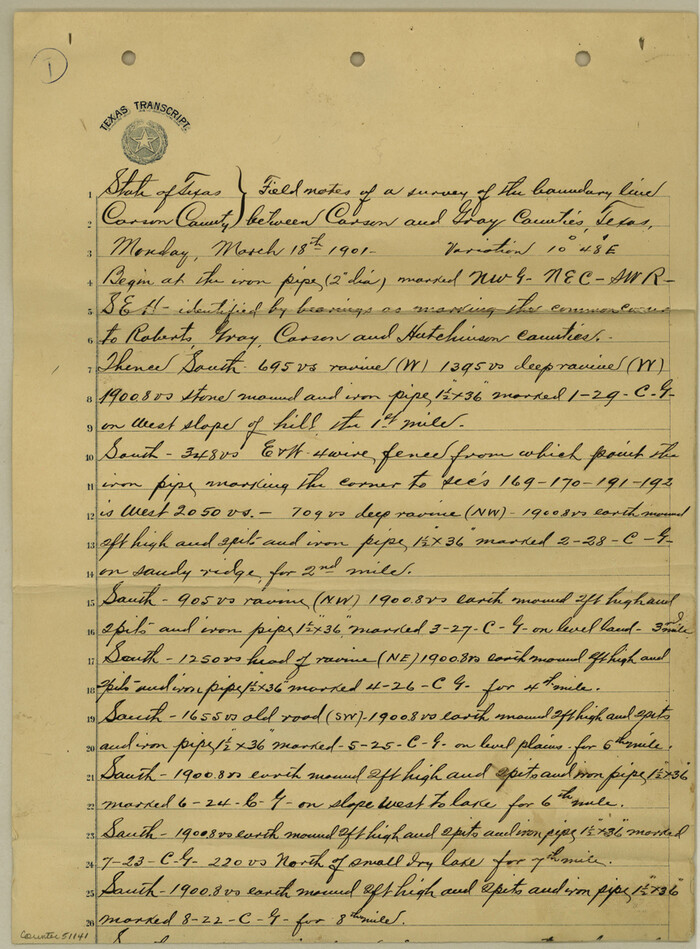 1
TEXAS TRANSCRIPT
1 State of Texas } Field notes of a survey of the boundary line
2 Carson County } between Carson and Gray Counties, Texas,
3 Monday, March 18th 1901- Variation 10° 48' E
4 Begin at the iron pipe (2" dia) marked NWG- NEC- SWR-
5 SEH- identified by bearings as marking the common corner
6 to Roberts, Gray, Carson and Hutchinson counties.-
7 Thence South- 695 vs ravine (W) 1395 vs deep ravine (W)
8 1900.8 vs stone mound and iron pipe 1½"x36" marked 1-29-C-G-
9 on West slope of hill the 1st mile.
10 South- 348 vs E & W. 4 wire fence from which point the
11 iron pipe marking the corner to sec's 169-170-191-192
12 is West 2050 vs.- 709 vs deep ravine (NW)- 1900.8 vs earth mound
13 2ft high and 2 pits and iron pipe 1½x36" marked 2-28-C-G-
14 on sandy ridge, for 2nd mile.
15 South- 905 vs ravine (NW) 1900.8 vs earth mound 2ft high and
16 2 pits and iron pipe 1½"x36" marked 3-27-C-G- on level land- 3d mile
17 South- 1250 vs head of ravine (NE) 1900.8 vs earth mound 2ft high and
18 2 pits and iron pipe 1½x36" marked 4-26-C G- for 4th mile.
19 South- 1655 vs old road (SW)- 1900.8 vs earth mound 2ft high and 2 pits
20 and iron pipe 1½ x36" marked-5-25-C-G- on level plains- for 5th mile.
21 South-1900.8 vs earth mound 2ft high and 2 pits and iron pipe 1½"x36"
22 marked 6-24-C-G- on slope west to lake for 6th mile.
23 South-1900.8 vs earth mound 2ft high and 2 pits and iron pipe 1½"x36" marked
24 7-23-C-G- 220 vs North of small dry lake for 7th mile.
25 South-1900.8 vs earth mound 2ft high and 2 pits and iron pipe 1½"x36"
26 marked 8-22-C-G- for 8th mile.
Counter 51141